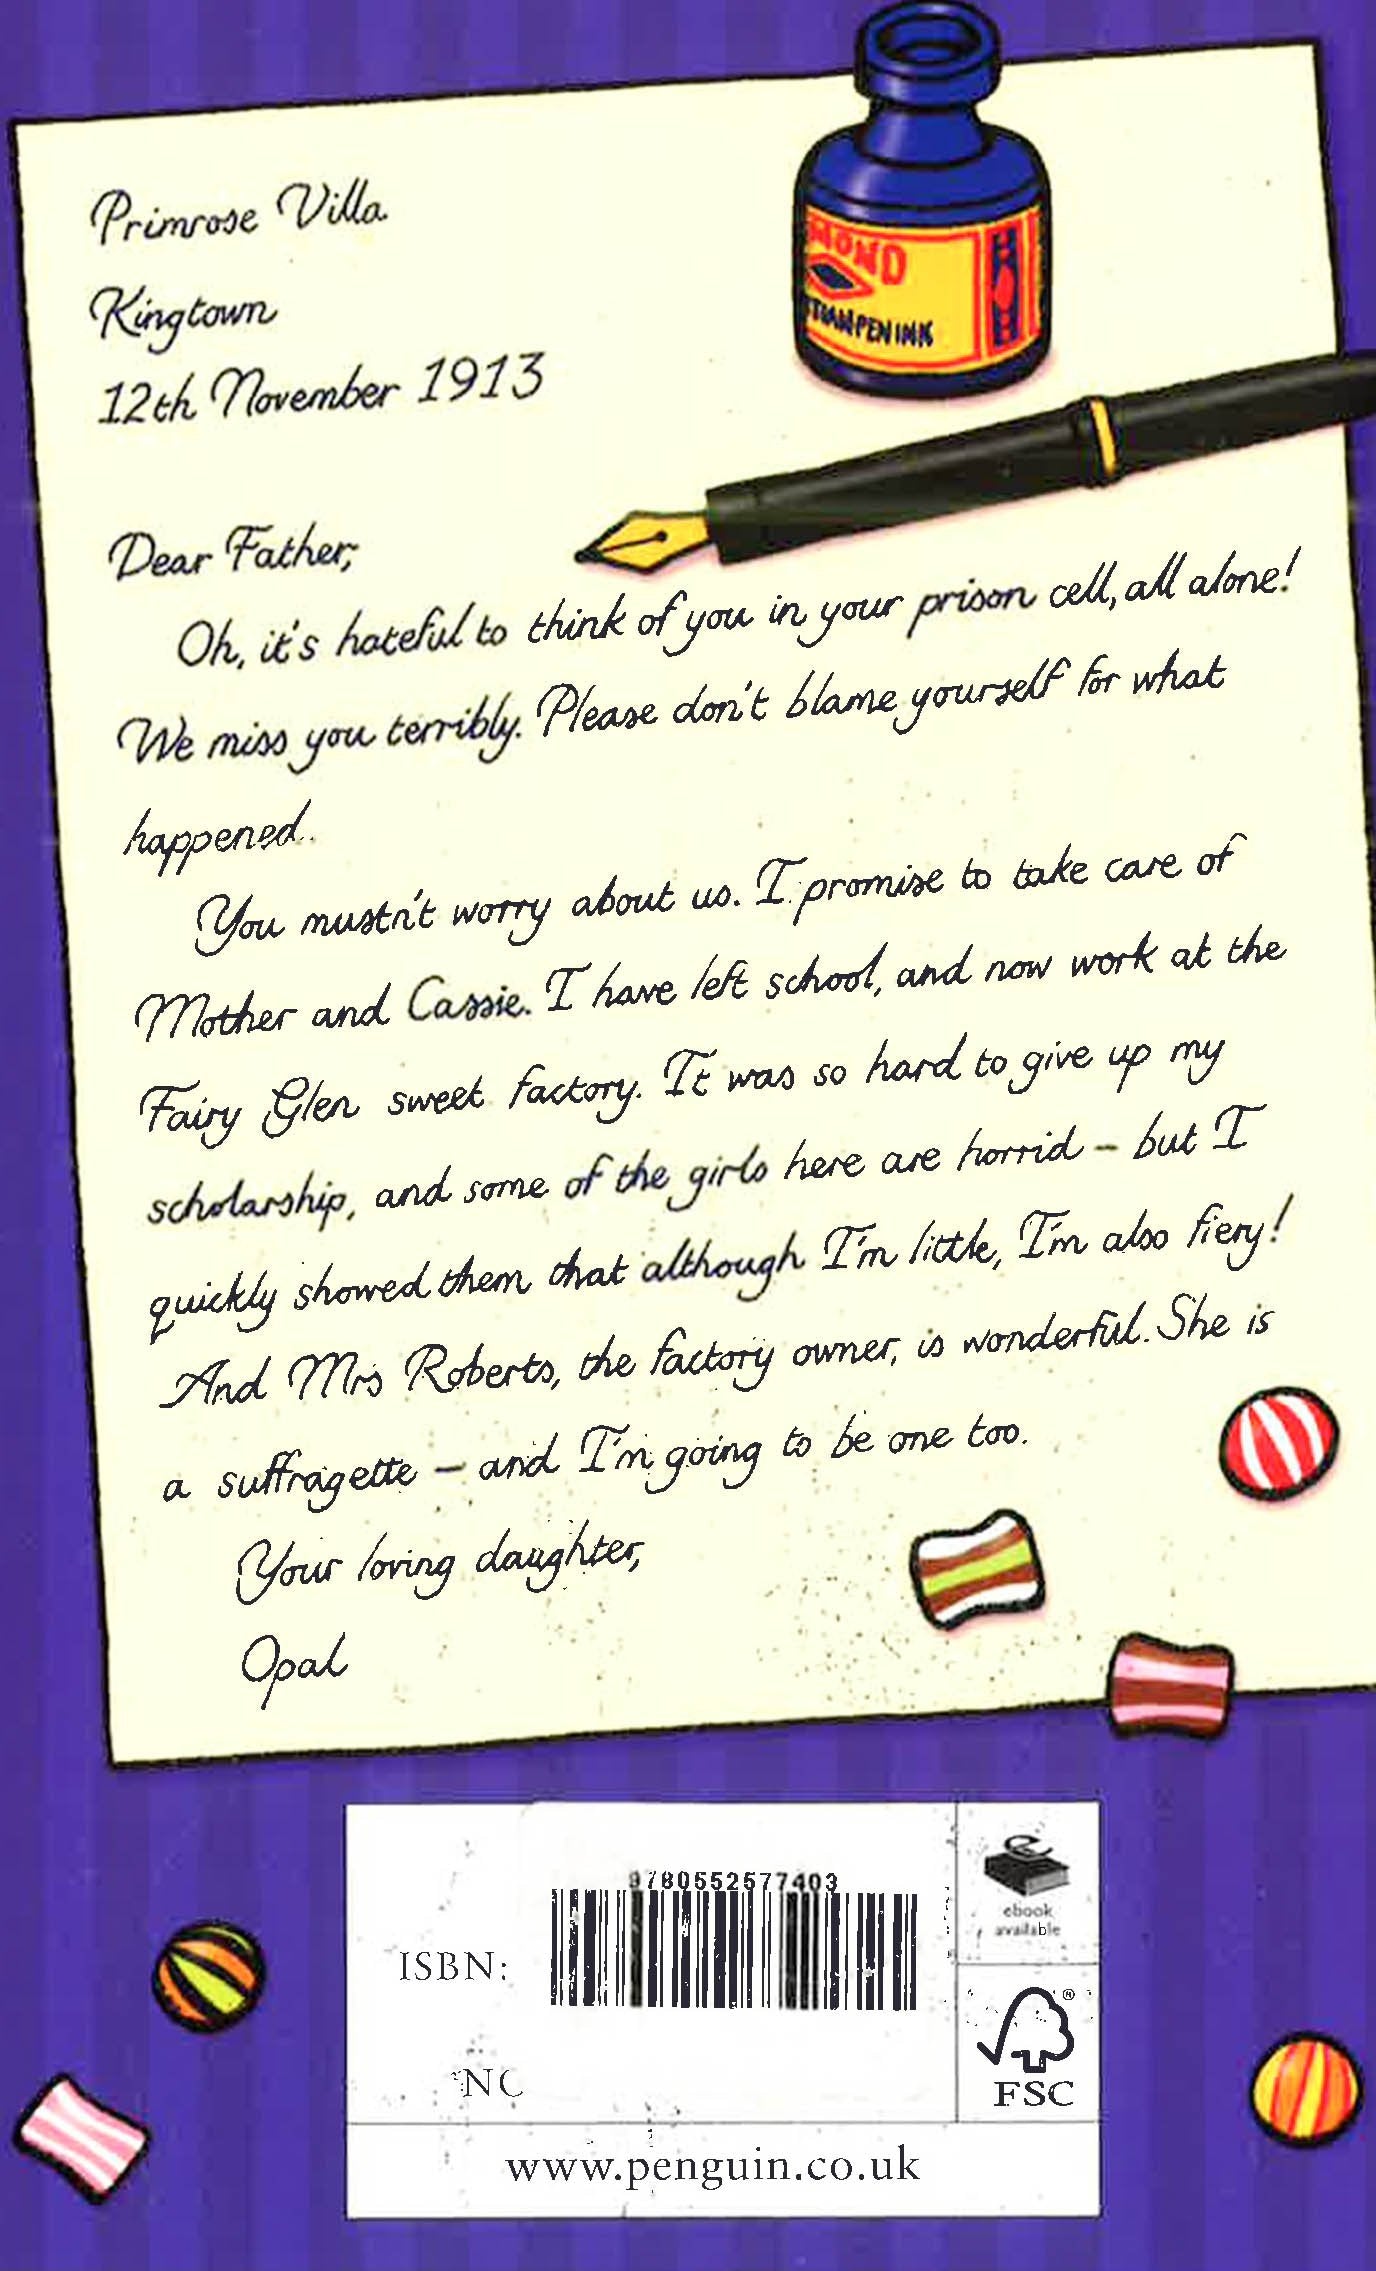 Primrose Villa
Kingtown
12th November 1913
MOND
TIAN PEN INK
Dear Father,
Oh, it's hateful to think of you in your prison cell, all alone!
We miss you terribly. Please don't blame yourself for what
happened.
You mustn't worry about us. I promise to take care of
Mother and Cassie. I have left school, and now work at the
Fairy Glen sweet factory. It was so hard to give up my
scholarship, and some of the girls here are horrid – but I
quickly showed them that although I'm little, I'm also fiery!
And Mrs Roberts, the factory owner, is wonderful. She is
a suffragette – and I'm going to be one too.
Your loving daughter,
Opal
9780552577403
ISBN:
ebook
available
®
FSC
www.penguin.co.uk